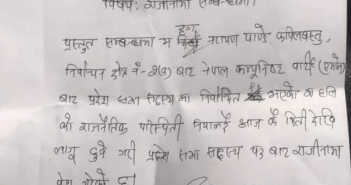 विषयः राजीनामा सम्बन्धमा।
प्रस्तुत सम्बन्धमा म नारायण पाण्डे कपिलवस्तु,
निर्वाचन क्षेत्र नं-२(क) बाट नेपाल कम्युनिष्ट पार्टी (एमाले)
बाट प्रदेश सभा सदस्य मा निर्वाचित भएको छु हाल
को राजनैतिक परिस्थिती आज कै मिती देखि
लागू हुने गरी प्रदेश सभा सदस्य पद बाट राजीनामा
पेश गरेको छु।